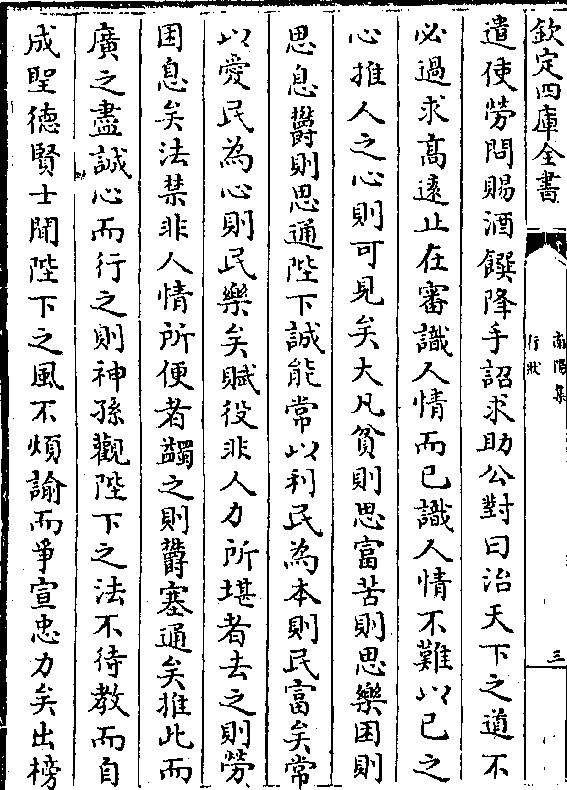 欽定四庫全書
南陽集
行狀
三
遣使勞問賜酒饌降手詔求助公對曰治天下之道不
必過求髙逺止在審識人情而已識人情不難以已之
心推人之心則可見矣大凡貧則思富苦則思樂困則
思息鬱則思通陛下誠能常以利民為本則民富矣常
以愛民為心則民樂矣賦役非人力所堪者去之則勞
困息矣法禁非人情所便者蠲之則鬱塞通矣推此而
廣之盡誠心而行之則神孫觀陛下之法不待教而自
成聖德賢士聞陛下之風不煩諭而爭宣忠力矣出榜